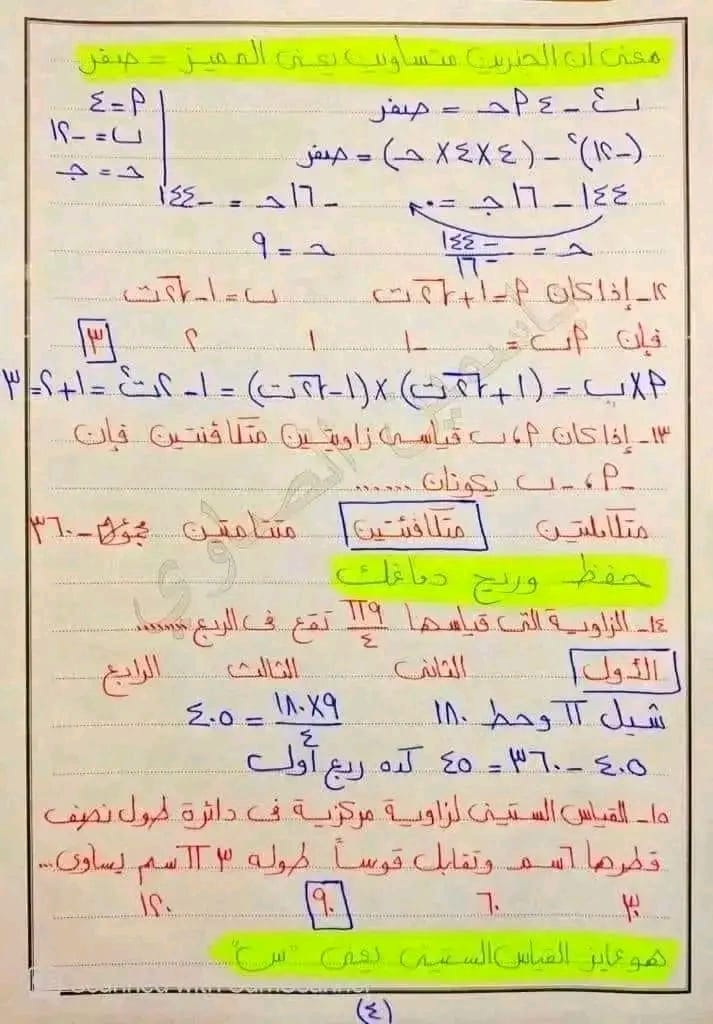 معنى ان الجذرين متساويين يعنى المميز = صفر
ب² - ٤ P حـ = صفر
P = ٤
ب = -١٢
حـ = جـ
(-١٢)² - (٤×٤× حـ) = صفر
١٤٤ - ١٦جـ = ٠ -١٦حـ = -١٤٤
حـ = -١٤٤/-١٦ حـ = ٩
١٢- إذا كان P = ١+√٢ت ب = ١-√٢ت
فإن Pب = -١ ١ ٢ ٣
P×ب = (١+√٢ت)×(١-√٢ت) = ١-٢ت² = ١+٢ = ٣
١٣- إذا كان P، ب قياسى زاويتين متكافئتين فإن
-P، -ب يكونان .......
متكاملتين متكافئتين متتامتين مجموعهم -٣٦٠
حفظ وريح دماغك
١٤- الزاوية التى قياسها ٩π/٤ تقع فى الربع .......
الأول الثانى الثالث الرابع
شيل π وحط ١٨٠ ٩×١٨٠/٤ = ٤٠٥
٤٠٥ - ٣٦٠ = ٤٥ كده ربع أول
١٥- القياس الستينى لزاوية مركزية فى دائرة طول نصف
قطرها ٦سم وتقابل قوساً طوله ٣πسم يساوى...
٣٠ ٦٠ ٩٠ ١٢٠
هو عايز القياس الستينى يعنى "س"
Scanned with CamScanner
(٤)